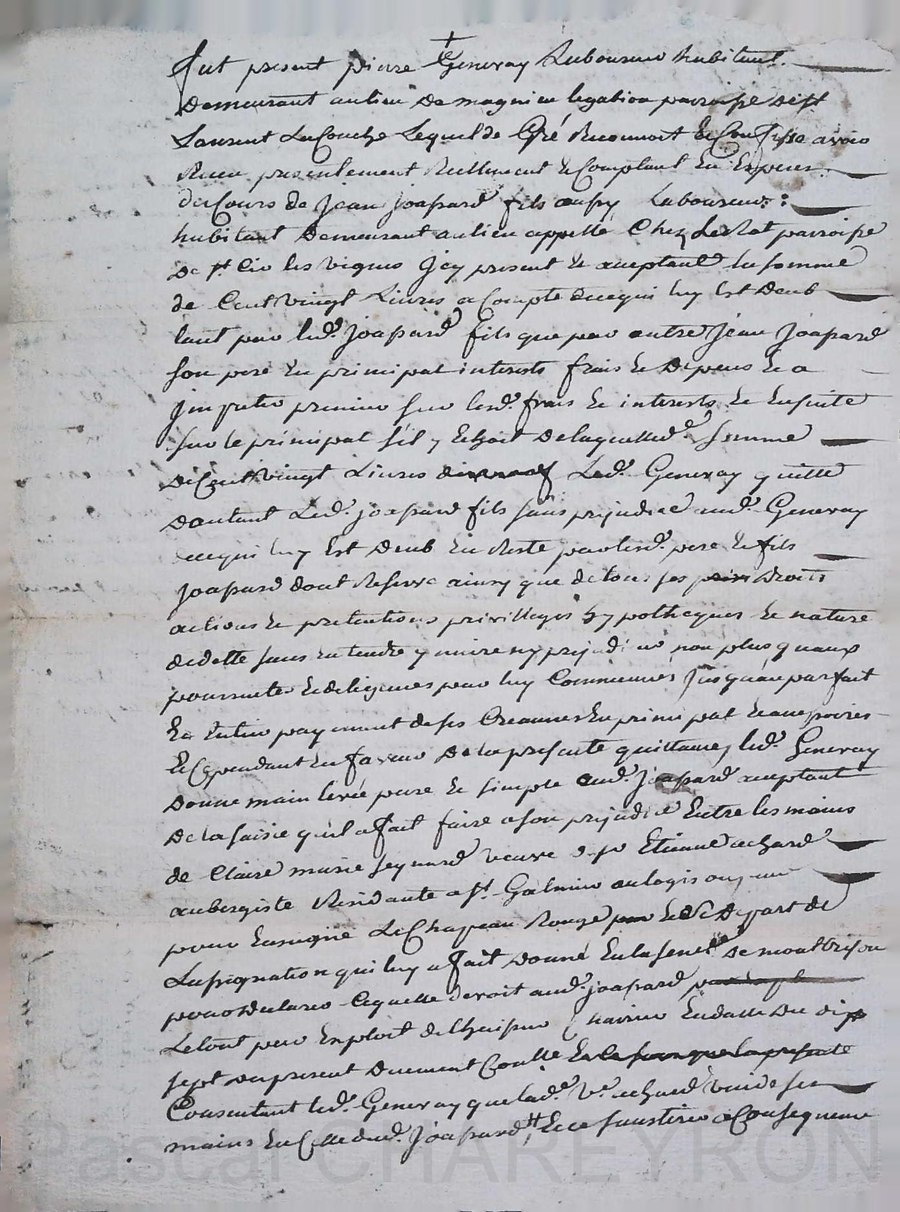 +
fut present pierre Genevay Laboureur habitant
Demeurant au lieu De magnieu legation parroisse de st
Laurent La Couche Lequel de Gré Reconnoit & Confesse avoir
Receu presentement Reellement & Comptant En Especes
de Cours de Jean Joassard fils aussy Laboureur
habitant Demeurant au lieu appellé Chez parroisse
De st Cir les vignes Icy present & aceptant la somme
de Cent vingt Livres a Compte de ce qui luy Est Deub
tant par led. Joassard fils que par autre Jean Joassard
son pere En principal interests frais & Depens & a
Imputer premier sur lesd. frais & interests & Ensuite
sur le principal s'il y Echoit De laquelle de somme
De Cent vingt Livres Led. Genevay quitte
D'autant Led. Joassard fils sans prejudice aud. Genevay
de ce qui luy Est Deub En Reste par lesd. pere & fils
Joassard dont Reserve ainsy que de tous ses Droits
actions & pretentions privilleges hypotheques & nature
de dette sans Entendre y nuire ny prejudicier non plus quaux
poursuites & diligences par luy Commencés Jusqu'au parfait
& Entier payement de ses Creances En principal & accessoires
& Cependant En faveur De la presente quittance led. Genevay
Donne main levée pure & simple aud. Joassard aceptant
De la saisie qu'il a fait faire a son prejudice Entre les mains
de Claire marie veuve Etienne achard
aubergiste Residante a st. Galmier au logis
pour Enseigne Le Chapeau Rouge & Se Depart de
L'assignation qui luy a fait Donné En la senee De montbrison
pour Declarer Ce quelle devoit aud. Joassard
Le tout par Exploit de l'huissier En datte Du dix
sept du present Duement Conllé En
Consentant led. Genevay que lad. ve. achard vuide ses
mains En Celle dud. Joassard Consequence
Pascal CHAREYRON